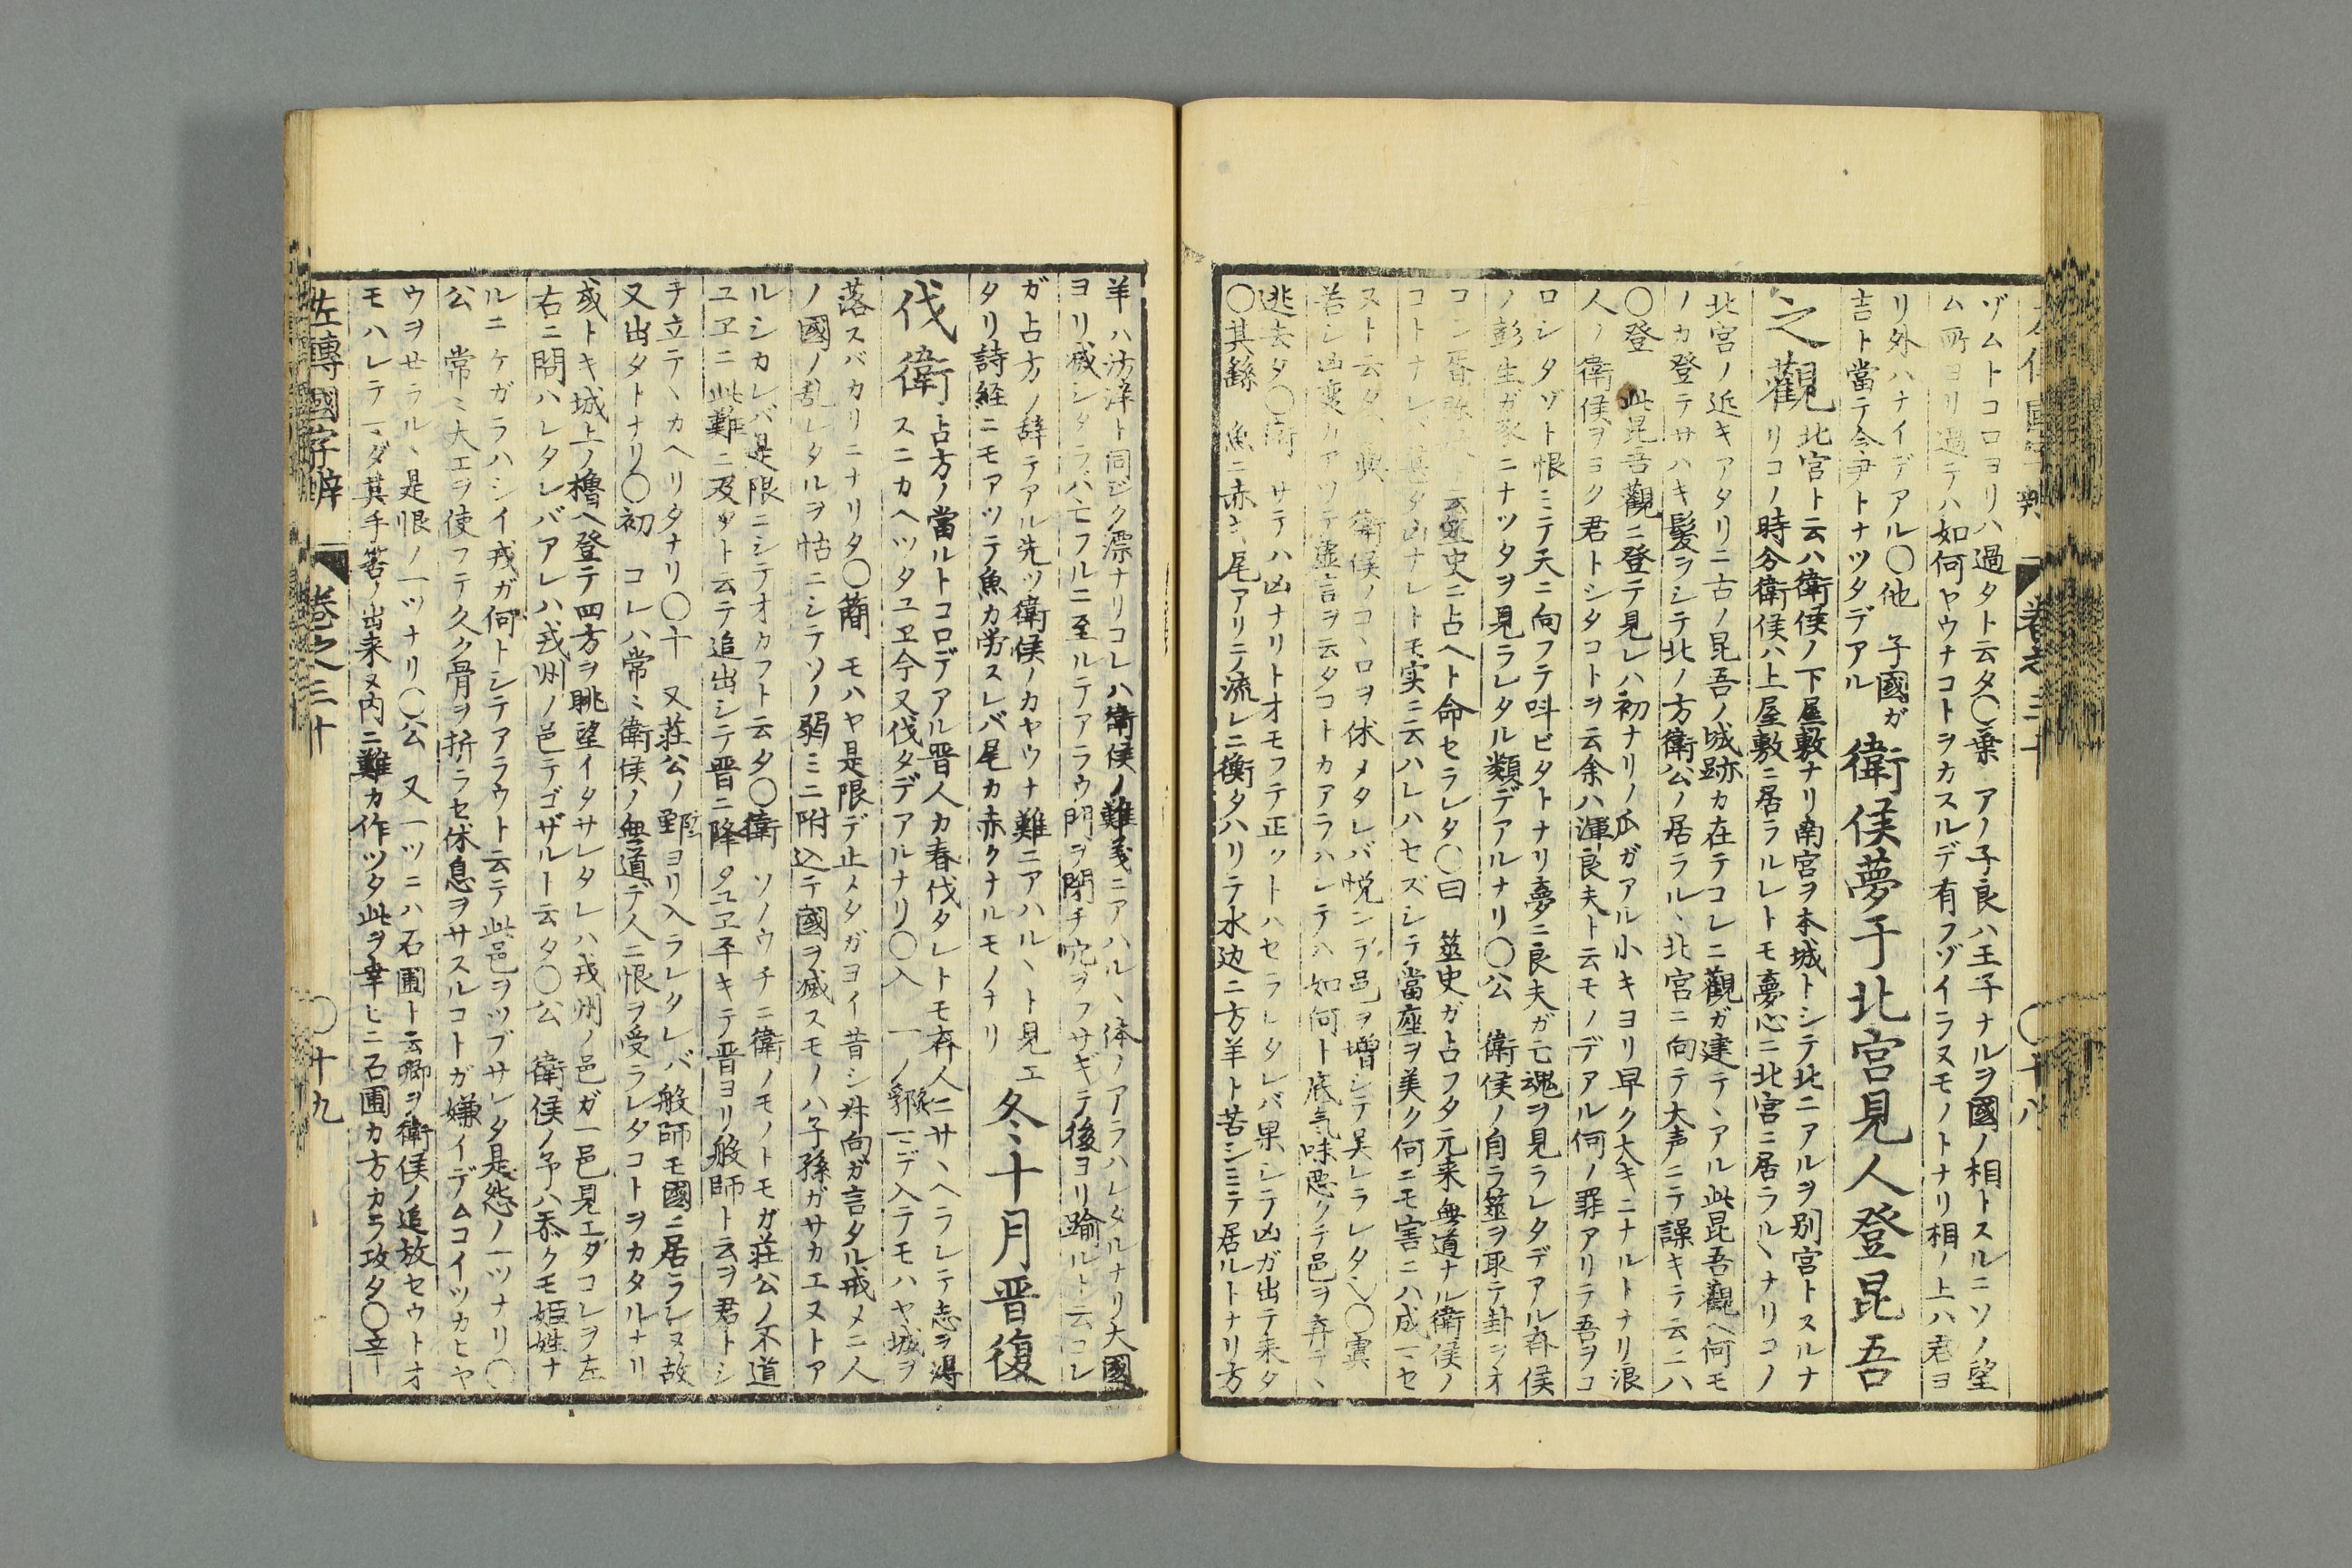 ゾムトコロヨリハ過タト云タ〇葉アノ子良ハ王子ナルヲ國ノ相トスルニソノ望
ム所ヨリ過テハ如何ヤウナコトヲカスルデ有フゾイラヌモノトナリ相ノ上ハ君ヨ
リ外ハナイデアル〇他 子國ガ
吉ト當テ令尹トナツタデアル
衛侯夢于北宮見人登昆吾
之觀
北宮ト云ハ衛侯ノ下屋敷ナリ南宮ヲ本城トシテ北ニアルヲ別宮トスルナ
リコノ時分衛侯ハ上屋敷ニ居ラルレトモ夢心ニ北宮ニ居ラルヽナリコノ
北宮ノ近キアタリニ古ノ昆吾ノ城跡カ在テコレニ觀ガ建テヽアル此昆吾觀ヘ何モ
ノカ登テサハキ髪ヲシテ北ノ方衛公ノ居ラルヽ北宮ニ向テ大声ニテ譟キテ云ニハ
〇登 此昆吾觀ニ登テ見レハ初ナリノ瓜ガアル小キヨリ早ク大キニナルトナリ浪
人ノ衛侯ヲヨク君トシタコトヲ云余ハ渾良夫ト云モノデアル何ノ罪アリテ吾ヲコ
ロシタゾト恨ミテ天ニ向フテ呌ビタトナリ夢ニ良夫ガ亡魂ヲ見ラレタデアル斉侯
ノ彭生ガ豕ニナツタヲ見ラレタル類デアルナリ〇公 衛侯ノ自ラ筮ヲ取テ卦ヲオ
コシ胥弥 云筮史ニ占ヘト命セラレタ〇曰 筮史ガ占フタ元来無道ナル衛侯ノ
コトナレ 甚タ凶ナレトモ実ニ云ハレハセズシテ當座ヲ美ク何ニモ害ニハ成マセ
ヌト云タ 與 衛侯ノコヽロヲ休メタレバ悦ンデ邑ヲ増シテ呉レラレタ〇寘
若シ凶変カアツテ虚言ヲ云タコトカアラハレテハ如何ト底気味悪クテ邑ヲ弃テヽ
逃去タ〇衛 サテハ凶ナリトオモフテ正ツトハセラレタレバ果シテ凶ガ出テ来タ
〇其繇 魚ニ赤キ尾アリテ流レニ衡タハリテ水辺ニ方羊ト苦シミテ居ルトナリ方
羊ハ汸洋ト同ジク漂ナリコレハ衛侯ノ難義ニアハルヽ体ノアラハレタルナリ大國
ヨリ滅シタラバ亡フルニ至ルテアラウ門ヲ閉チ穴ヲフサギテ後ヨリ踰ルト云コレ
ガ占方ノ辞テアル先ツ衛侯ノカヤウナ難ニアハルヽト見エ
タリ詩経ニモアツテ魚カ労スレバ尾カ赤クナルモノナリ
冬十月晋復
伐衛
占方ノ當ルトコロデアル晋人カ春伐タレトモ斉人ニサヽヘラレテ志ヲ得
スニカヘツタユヱ今又伐タデアルナリ〇入 一ノ郛マデ入テモハヤ城ヲ
落スバカリニナリタ〇簡 モハヤ是限デ止メタガヨイ昔シ叔向ガ言タル戒メニ人
ノ國ノ乱レタルヲ怙ニシテソノ弱ミニ附込テ國ヲ滅スモノハ子孫ガサカエヌトア
ルシカレバ是限ニシテオカフト云タ〇衛 ソノウチニ衛ノモノトモガ荘公ノ不道
ユヱニ此難ニ及タト云テ追出シテ晋ニ降タユヱ平キテ晋ヨリ般師ト云ヲ君トシ
チ立テヽカヘリタナリ〇十 又荘公ノ鄄ヨリ入ラレタレバ般師モ國ニ居ラレヌ故
又出タトナリ〇初 コレハ常ミ衛侯ノ無道デ人ニ恨ヲ受ラレタコトヲカタルナリ
或トキ城上ノ櫓ヘ登テ四方ヲ眺望イタサレタレハ戎州ノ邑ガ一邑見エタコレヲ左
右ニ問ハレタレバアレハ戎州ノ邑テゴザルト云タ〇公 衛侯ノ予ハ忝クモ姫姓ナ
ルニケガラハシイ戎ガ何トシテアラウト云テ此邑ヲツブサレタ是怨ノ一ツナリ〇
公 常ミ大工ヲ使フテ久ク骨ヲ折ラセ休息ヲサスルコトガ嫌イデムコイツカヒヤ
ウヲセラルヽ是恨ノ一ツナリ〇公 又一ツニハ石圃ト云卿ヲ衛侯ノ追放セウトオ
モハレテマダ其手筈ノ出来ヌ内ニ難カ作ツタ此ヲ幸ヒニ石圃カ方カラ攻タ〇辛
左傳國字辨 巻之三十 〇十九